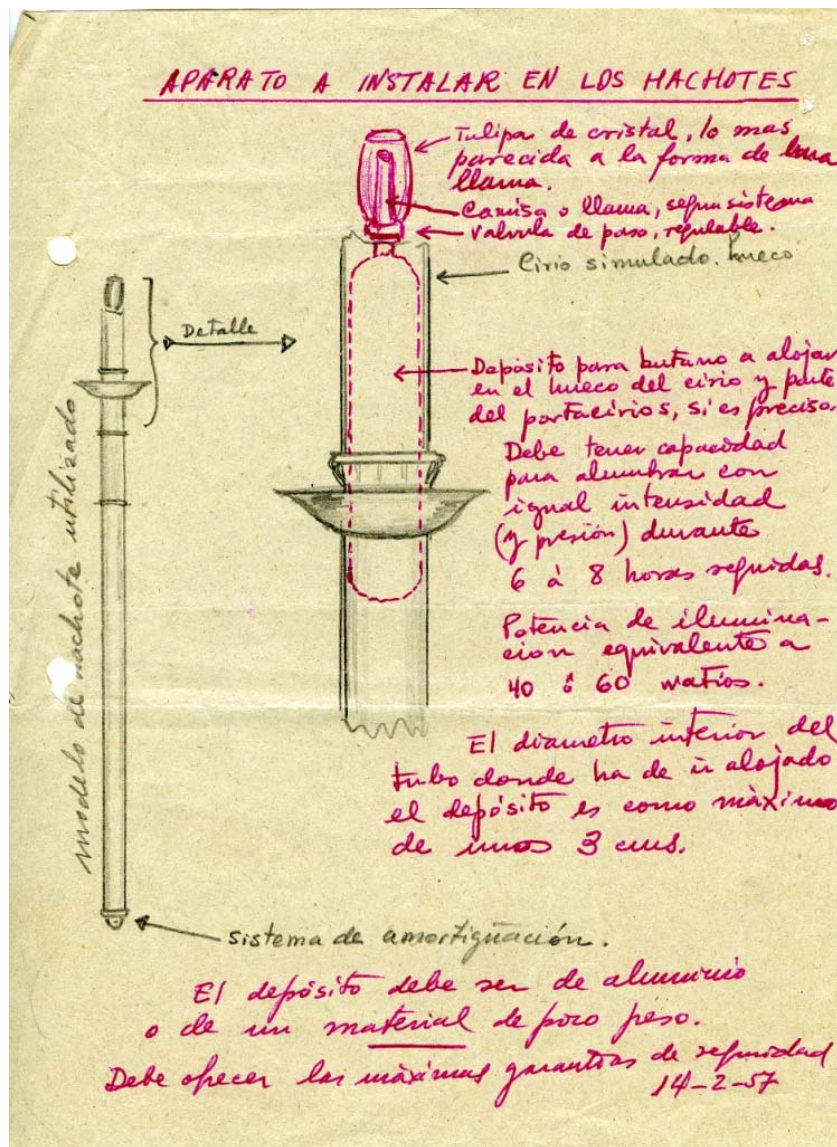 APARATO A INSTALAR EN LOS HACHOTES
Tulipa de cristal, lo mas
parecida a la forma de una
llama.
Camisa o llama, segun sistema
valvula de paso, regulable.
Cirio simulado. hueco
Detalle
Depósito para butano a alojar
en el hueco del cirio y parte
del portacirios, si es preciso.
Debe tener capacidad
para alumbrar con
igual intensidad
(y presión) durante
6 à 8 horas seguidas.
Potencia de ilumina-
cion equivalente a
40 ó 60 watios.
El diametro interior del
tubo donde ha de ir alojado
el depósito es como màximo
de unos 3 cms.
modelo de hachote utilizado
sistema de amortiguación.
El depósito debe ser de aluminio
o de un material de poco peso.
Debe ofrecer las máximas garantias de seguridad
14-2-57